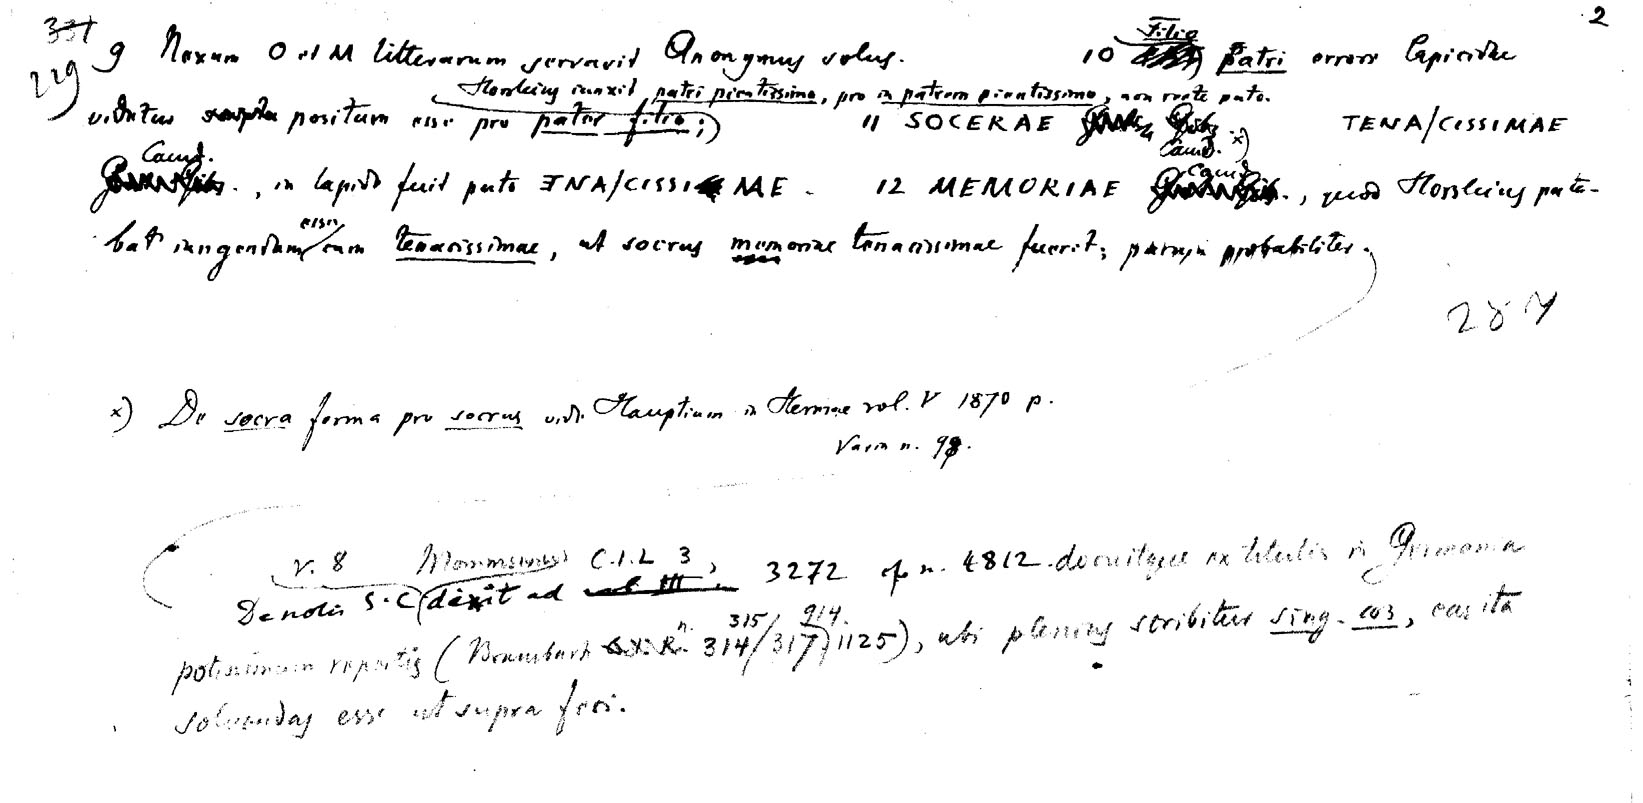 2
331
229
9 Nexum O et M litterarum servavit Anonymus solus. 10 Filio patri errore lapicidae
Horsleius iunxit patri pientissimo, pro in patrem pientissimo, non recte puto.
videtur positum esse pro pater filio; 11 SOCERAE Camd. x) TENA/CISSIMAE
Camd., in lapide fuit puto ENA/CISSIMAE. 12 MEMORIAE Camd., quod Horsleius puta-
bat iungendum esse cum tenacissimae, ut socrus memoriae tenacissimae fuerit; parum probabiliter.
287
x) De socra forma pro socrus vide Hauptium in Hermae vol. V 1870 p.
Varia n. 98.
v. 8 Mommsenus C.I.L 3, 3272 cf n. 4812 docuitque ex titulis in Germania
De notis S·C dixit ad vol III
315 914.
potissimum repertis (Brambach n. 314/317/1125), ubi plenius scribitur sing. cos, eas ita
solvendas esse ut supra feci.